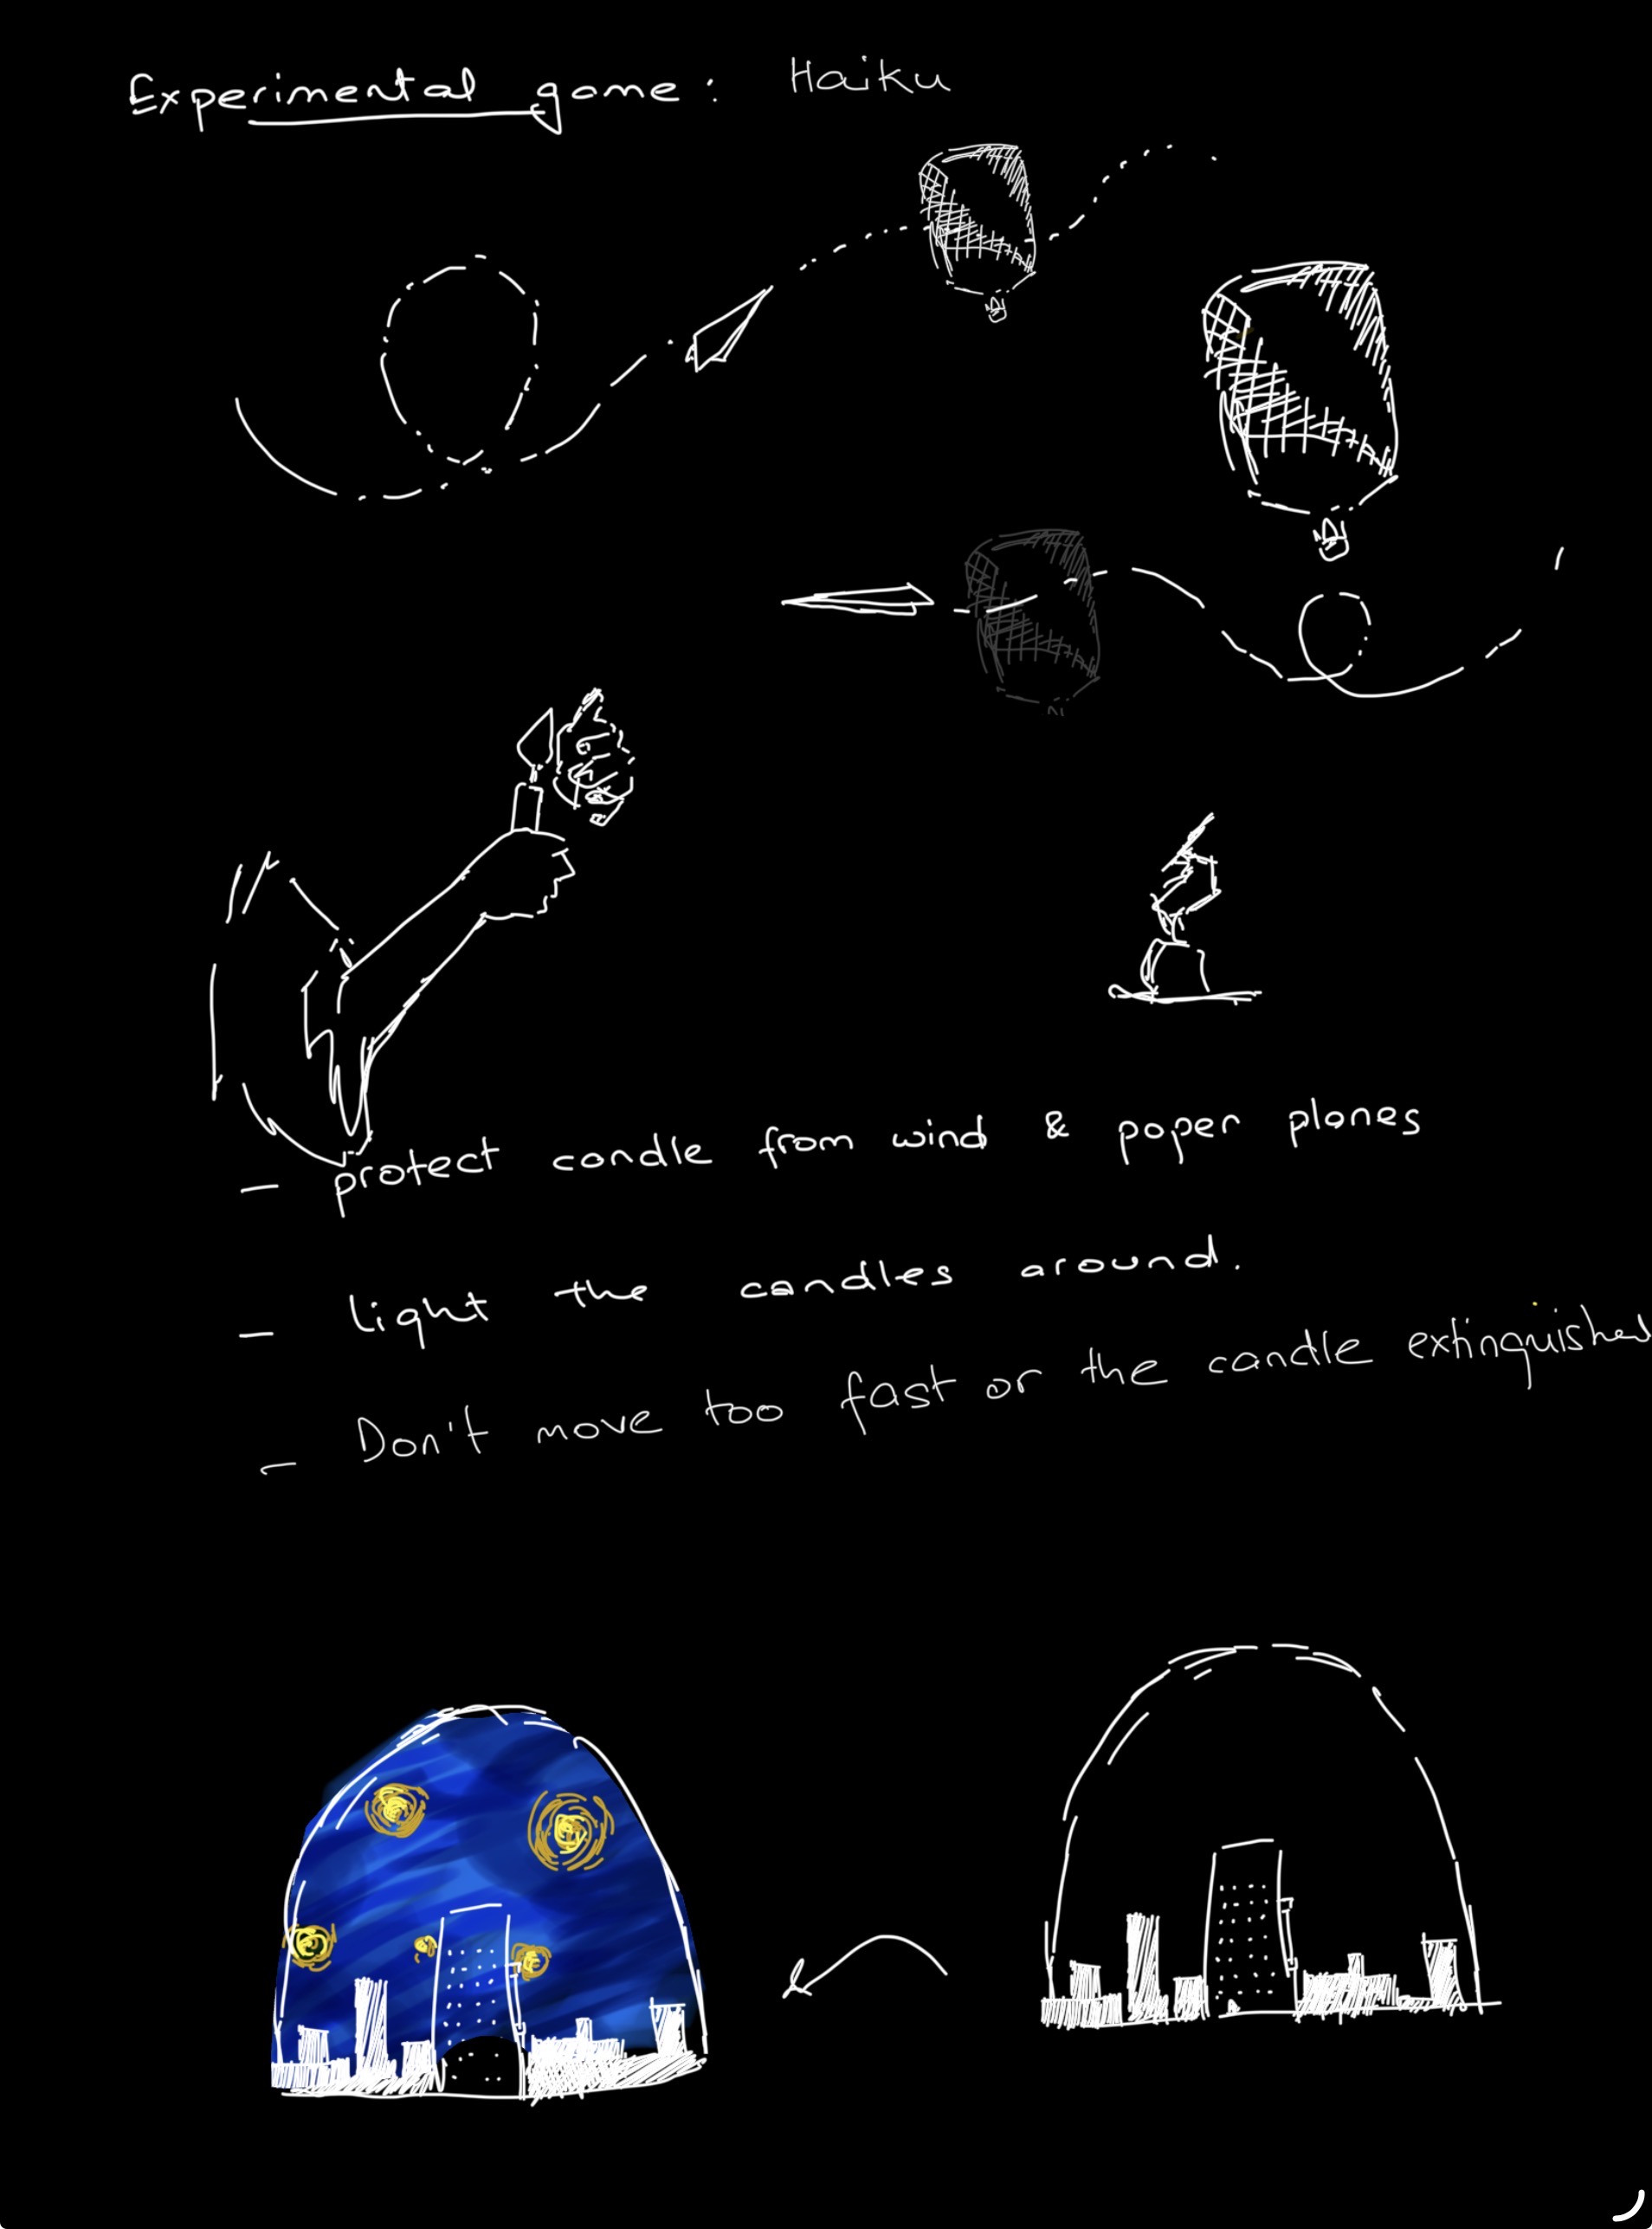 Experimental game: Haiku
- protect candle from wind & paper planes
- light the candles around.
- Don't move too fast or the candle extinguished